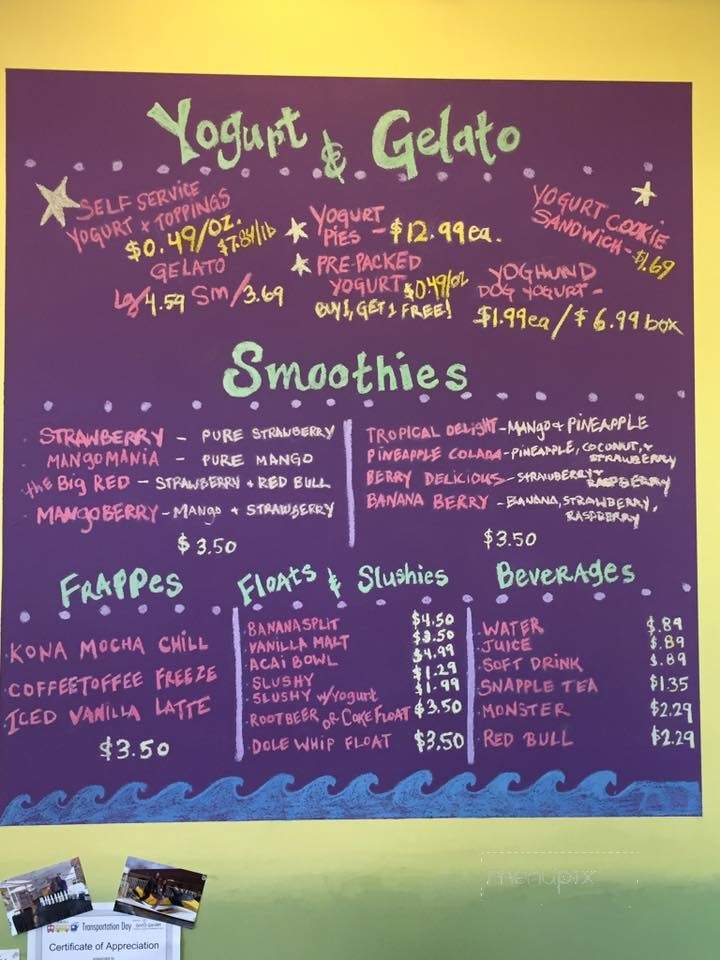 Yogurt & Gelato
SELF SERVICE
YOGURT + TOPPINGS
$0.49/oz. $7.84/lb
GELATO
Lg/4.59 Sm/3.69
YOGURT
PIES - $12.99ea.
PRE-PACKED
YOGURT $0.49/oz
BUY 1, GET 1 FREE!
YOGURT COOKIE
SANDWICH - $1.69
YOGHUND
DOG YOGURT -
$1.99ea / $6.99 box
Smoothies
STRAWBERRY - PURE STRAWBERRY
MANGOMANIA - PURE MANGO
the BIG RED - STRAWBERRY + RED BULL
MANGOBERRY - MANGO + STRAWBERRY
$3.50
TROPICAL DELIGHT - MANGO + PINEAPPLE
PINEAPPLE COLADA - PINEAPPLE, COCONUT, +
STRAWBERRY
BERRY DELICIOUS - STRAWBERRY +
RASPBERRY
BANANA BERRY - BANANA, STRAWBERRY,
RASPBERRY
$3.50
FRAPPES
KONA MOCHA CHILL
COFFEETOFFEE FREEZE
ICED VANILLA LATTE
$3.50
FLOATS & Slushies
BANANASPLIT $4.50
VANILLA MALT $3.50
ACAI BOWL $4.99
SLUSHY $1.29
SLUSHY w/Yogurt $1.99
ROOTBEER OR COKE FLOAT $3.50
DOLE WHIP FLOAT $3.50
BEVERAGES
WATER $.89
JUICE $.89
SOFT DRINK $.89
SNAPPLE TEA $1.35
MONSTER $2.29
RED BULL $2.29
menupix
Transportation Day
Certificate of Appreciation